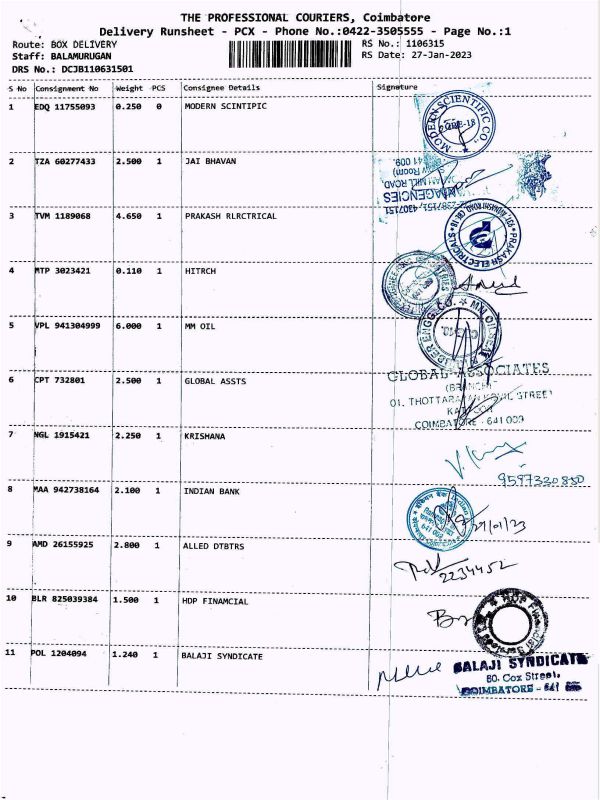 THE PROFESSIONAL COURIERS, Coimbatore
Delivery Runsheet - PCX - Phone No.:0422-3505555 - Page No.:1
Route: BOX DELIVERY RS No.: 1106315
Staff: BALAMURUGAN RS Date: 27-Jan-2023
DRS No.: DCJB110631501
S No Consignment No Weight PCS Consignee Details Signature
1 EDQ 11755093 0.250 0 MODERN SCINTIPIC
MODERN SCIENTIFIC CO.
2 TZA 60277433 2.500 1 JAI BHAVAN
641 009.
MILL ROAD,
AGENCIES
2387151, 4307151
3 TVM 1189068 4.650 1 PRAKASH RLRCTRICAL
PRAKASH ELECTRICALS
4 MTP 3023421 0.110 1 HITRCH
5 VPL 941304999 6.000 1 MM OIL
ENGG. CO.
6 CPT 732801 2.500 1 GLOBAL ASSTS
GLOBAL ASSOCIATES
(BRANCH)
01, THOTTARAYAN KOVIL STREET
KATTOOR
COIMBATORE - 641 009
7 NGL 1915421 2.250 1 KRISHANA
9597320830
8 MAA 942738164 2.100 1 INDIAN BANK
27/01/23
9 AMD 26155925 2.800 1 ALLED DTBTRS
2234452
10 BLR 825039384 1.500 1 HDP FINAMCIAL
HDP Financial Services
11 POL 1204094 1.240 1 BALAJI SYNDICATE
BALAJI SYNDICATE
80. Cox Street,
COIMBATORE - 641